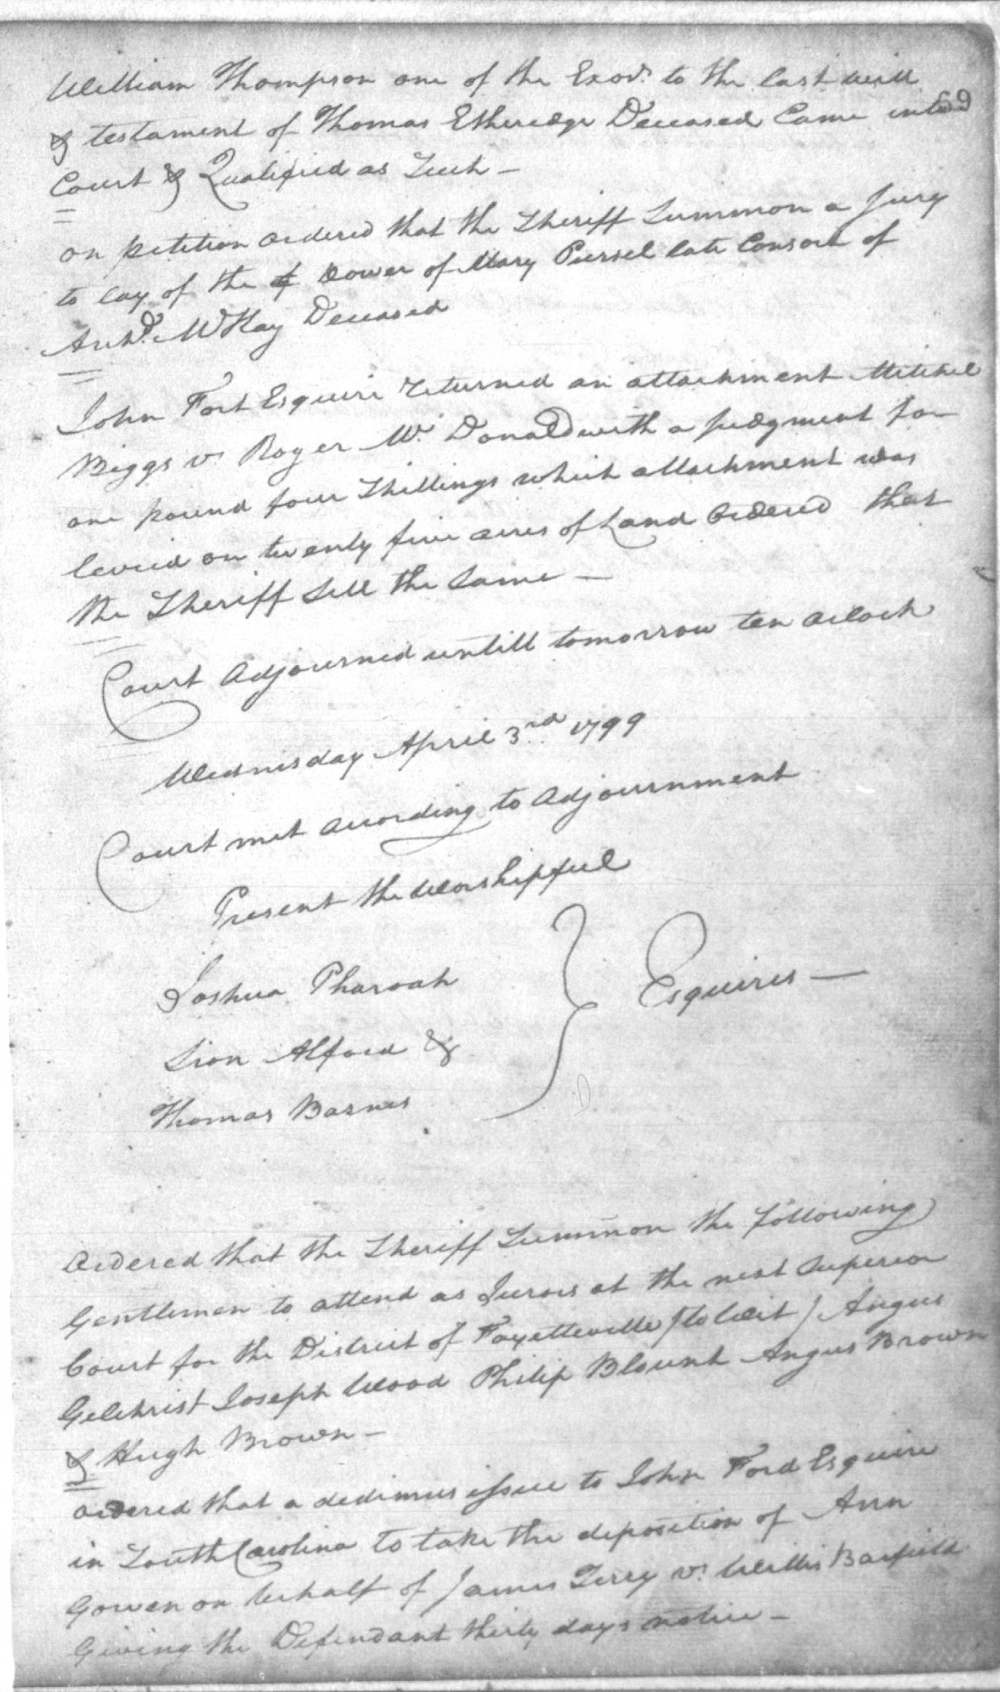 William Thompson one of the Exors to the last will
69
& testament of Thomas Etheredge Deceased Came into
Court & Qualified as Such —
on petition ordered that the Sheriff Summon a Jury
to lay of the Dower of Mary Pursel late Consort of
Archd. McKay Deceased
John Fort Esquire returned an attachment Mitchel
Biggs vs. Roger Mc Donald with a judgment for
one pound four Shillings which attachment was
levied on twenty five acres of Land Ordered that
the Sheriff Sell the Same —
Court Adjourned untill tomorrow ten oclock
Wednesday April 3rd 1799
Court met according to Adjournment
Present the Worshipfull
Joshua Pharoah
Sion Alford &
Thomas Barnes
} Esquires —
Ordered that the Sheriff Summon the following
Gentlemen to attend as Jurors at the next Superior
Court for the District of Fayetteville (to Wit) Angus
Gilchrist Joseph Wood Philip Blount Angus Brown
& Hugh Brown —
ordered that a dedimus issue to John Ford Esquire
in South Carolina to take the deposition of Ann
Gowen on behalf of James Terry vs. Willis Barfield
Giving the Defendant thirty days notice —